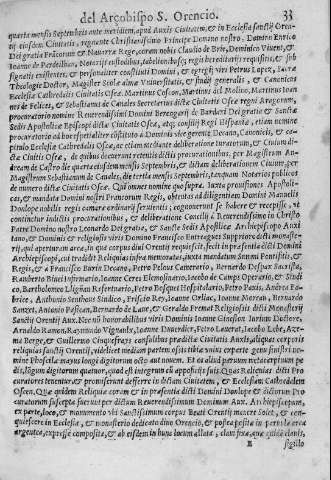 del Arçobispo S. Orencio. 33
quarta mensis Septembris ante meridiem, apud Auxis Ciuitatem, & in Ecclesia sanctij Oren-
tij eiusdem Ciuitatis, regnante Christianissimo Principe Domino nostro, Domino Enrico
Dei gratia Francorum & Nauarræ Rege, coram nobis Claudio de Brie, Dominico Viuent, &
Ioanne de Perdelhan, Notarijs custodibus, tabellionibusq; regijs hereditarijs requisitis, & sub
signatis existentes, & personaliter constituti Domini, & egregij viri Petrus Lopez, Sacræ
Theologiæ Doctor, Magister Scholæ almæ Vniuersitatis, & studij generalis, & Canonicus
Ecclesiæ Cathedralis Ciuitatis Oscæ. Martinus Coscon, Martinus del Molino, Martinus Ioan-
nes de Felices, & Sebastianus de Canales Secretarius dictæ Ciuitatis Oscæ regni Aragonum,
procuratorio nomine Reuerendissimi Domini Berengarij de Bardaxi Dei gratia & Sanctæ
Sedis Apostolicæ Episcopi dictæ Ciuitatis Oscæ, atq; consilij Regi Hispaniæ, etiam nomine
procuratorio ad hoc specialiter constituto à Dominis vice gerente Decano, Canonicis, & ca-
pitulo Ecclesiæ Cathedralis Oscæ, ac etiam mediante deliberatione Iuratorum, & Ciuium di-
ctæ Ciuitatis Oscæ, de quibus docuerunt retentis dictis procurationibus, per Magistrum An-
dream de Castro die quarta eiusdem mensis Septembris, & dictam deliberationem Ciuium, per
Magistrum Sebastianum de Canales, die tertia mensis Septembris, tanquam Notarios publicos
de numero dictæ Ciuitatis Oscæ. Qui omnes nomine quo supra. Iuxta prouisiones Apostoli-
cas, & mandata Domini nostri Francorum Regis, obtentas ad diligentiam Domini Manuelis
Donlope nobilis regis comara ordinarij seruientis, cognouerunt se habere & recepisse, vt
continetur in dictis procurationibus, & deliberatione Concilij à Reuerendissimo in Christo
Patre Domino nostro Leonardo Dei gratia, & Sanctæ Sedis Apostolicæ Archiepiscopo Auxi
tano, & Dominis & religiosis viris Domino Francisco Entraguas Suppriore dicti monaste-
rij, qui aperturam arcæ, in qua corpus diui Orentij requiescit, fecit in præsentia dicti Domini
Archiepiscopi, cui tradidit Reliquias infra memoratas, iuxta mandatum Summi Pontificis, &
Regis, & à Francisco Darin Decano, Petro Pelous Camerario, Bernardo Desfaux Sacrista,
Ramberto Biuei Infirmario, Ioanne Ceres Elemosinario, Iacobo de Camps Operario, & Stude-
rio, Bartholomeo Lignan Refertuario, Petro Bosquet Hospitalerio, Petro Paxis, Andrea Fa-
brice, Anthonio Senthous Sindico, Frisçio Rey, Ioanne Ozliac, Ioanne Moreau, Bernardo
Sanxet, Antonio Pascau, Bernardo de Laar, & Geraldo Fremal Religiosis dicti Monasterij
Sanctij Orentij Aux. Nec nõ honorabilibus viris Dominis Ioanne Gineston Iurium Doctore,
Arnaldo Ramon, Raymundo Vignaulx, Ioanne Dauerdier, Petro Louerat, Iacobo Lebe, Aze-
ma Berge, & Guillermo Cinquefrays consulibus prædictæ Ciuitatis Auxis, aliquas corporis
reliquias sanctij Orentij, videlicet mediam partem ossis tibiæ vnius carpetæ genu finij sine no-
mine Phocella maxus longi digitorum octo aut nouem. Et ex aliâ parte vnum metacarpium pe-
dis, longum digitorum quatuor, quod est integrum cũ apophisis suis Quas Reliquias dicti Pro
curatores tenentur, & promiserunt deferre in dictam Ciuitatem, & Ecclesiam Cathedralem
Oscæ. Quæ quidem Reliquiæ coram & in præsentia dicti Domini Donlope & dictorum Pro
curatorum suscepta fuerunt per dictum Reuerendissimum Dominum Aux. Archiepiscopum,
ex parte, loco, & monumento vbi Sanctissimum corpus Beati Orentij iacere solet, & con-
quiescere in Ecclesia, & monasterio dedicato diuo Orencio, & posita posita in partula area
argentea, expresse composita, & ab eisdem in hunc locum allata, clam fixa, que quidè clauis,
E sigillo